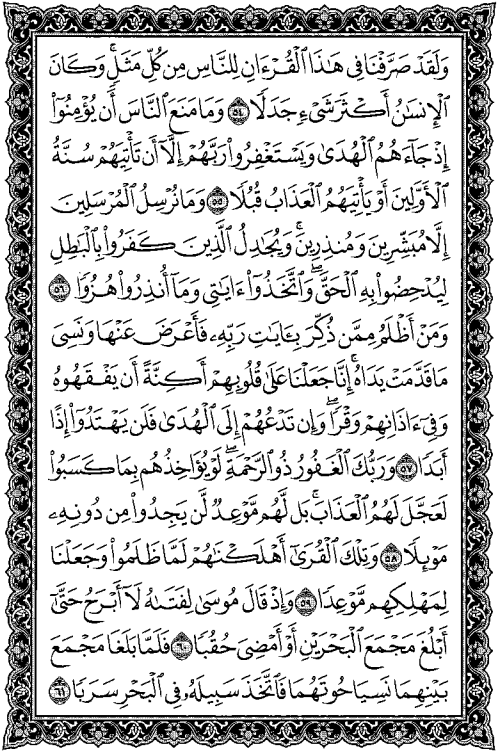 وَلَقَدْ صَرَّفْنَا فِي هَٰذَا ٱلْقُرْءَانِ لِلنَّاسِ مِن كُلِّ مَثَلٍ ۚ وَكَانَ
ٱلْإِنسَٰنُ أَكْثَرَ شَىْءٍ جَدَلًا ٥٤ وَمَا مَنَعَ ٱلنَّاسَ أَن يُؤْمِنُوٓا۟
إِذْ جَآءَهُمُ ٱلْهُدَىٰ وَيَسْتَغْفِرُوا۟ رَبَّهُمْ إِلَّآ أَن تَأْتِيَهُمْ سُنَّةُ
ٱلْأَوَّلِينَ أَوْ يَأْتِيَهُمُ ٱلْعَذَابُ قُبُلًا ٥٥ وَمَا نُرْسِلُ ٱلْمُرْسَلِينَ
إِلَّا مُبَشِّرِينَ وَمُنذِرِينَ ۚ وَيُجَٰدِلُ ٱلَّذِينَ كَفَرُوا۟ بِٱلْبَٰطِلِ
لِيُدْحِضُوا۟ بِهِ ٱلْحَقَّ ۖ وَٱتَّخَذُوٓا۟ ءَايَٰتِى وَمَآ أُنذِرُوا۟ هُزُوًا ٥٦
وَمَنْ أَظْلَمُ مِمَّن ذُكِّرَ بِـَٔايَٰتِ رَبِّهِۦ فَأَعْرَضَ عَنْهَا وَنَسِىَ
مَا قَدَّمَتْ يَدَاهُ ۚ إِنَّا جَعَلْنَا عَلَىٰ قُلُوبِهِمْ أَكِنَّةً أَن يَفْقَهُوهُ
وَفِىٓ ءَاذَانِهِمْ وَقْرًا ۖ وَإِن تَدْعُهُمْ إِلَى ٱلْهُدَىٰ فَلَن يَهْتَدُوٓا۟ إِذًا
أَبَدًا ٥٧ وَرَبُّكَ ٱلْغَفُورُ ذُو ٱلرَّحْمَةِ ۖ لَوْ يُؤَاخِذُهُم بِمَا كَسَبُوا۟
لَعَجَّلَ لَهُمُ ٱلْعَذَابَ ۚ بَل لَّهُم مَّوْعِدٌ لَّن يَجِدُوا۟ مِن دُونِهِۦ
مَوْئِلًا ٥٨ وَتِلْكَ ٱلْقُرَىٰٓ أَهْلَكْنَٰهُمْ لَمَّا ظَلَمُوا۟ وَجَعَلْنَا
لِمَهْلِكِهِم مَّوْعِدًا ٥٩ وَإِذْ قَالَ مُوسَىٰ لِفَتَىٰهُ لَآ أَبْرَحُ حَتَّىٰٓ
أَبْلُغَ مَجْمَعَ ٱلْبَحْرَيْنِ أَوْ أَمْضِىَ حُقُبًا ٦٠ فَلَمَّا بَلَغَا مَجْمَعَ
بَيْنِهِمَا نَسِيَا حُوتَهُمَا فَٱتَّخَذَ سَبِيلَهُۥ فِى ٱلْبَحْرِ سَرَبًا ٦١